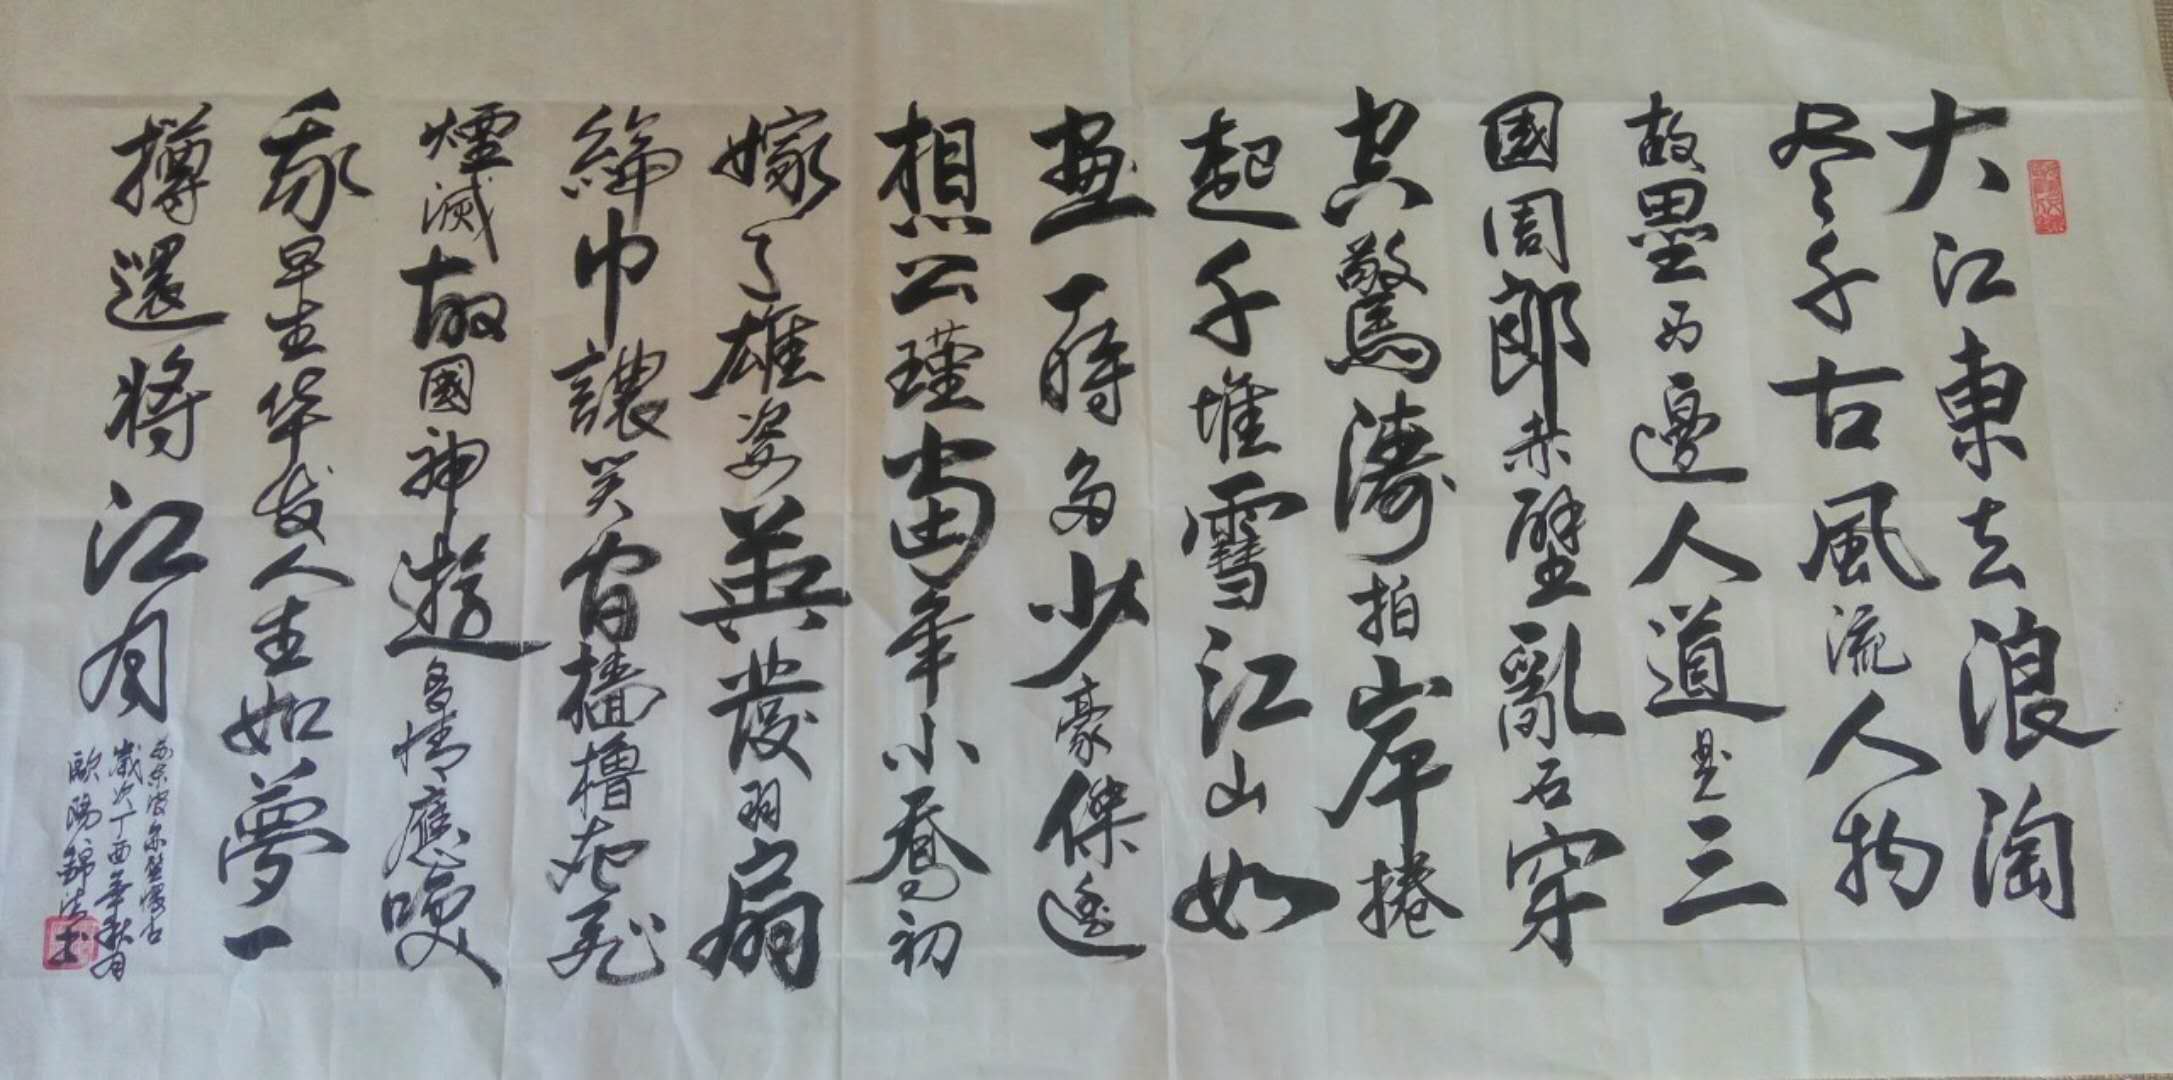 大江東去浪淘
尽千古風流人物
故壘西邊人道是三
國周郎赤壁亂石穿
空驚濤拍岸捲
起千堆雪江山如
畫一時多少豪傑遥
想公瑾當年小喬初
嫁了雄姿英發羽扇
綸巾談笑间檣櫓灰飛
煙滅故國神遊多情應唤
我早生华发人生如夢一
樽還將江月
苏东坡赤壁懷古
歲次丁酉年秋月
歐陽錦清书